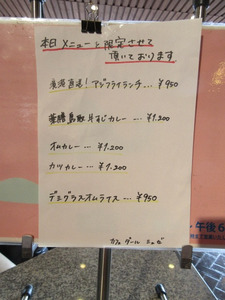 本日メニューを限定させて
頂いております
産直直場! アジフライランチ... ¥950
鳥取 牛すじカレー ... ¥1.200
オムカレー ... ¥1.200
カツカレー ... ¥1.200
デミグラスオムライス ... ¥950
カフェ ダール ミュゼ
午後6